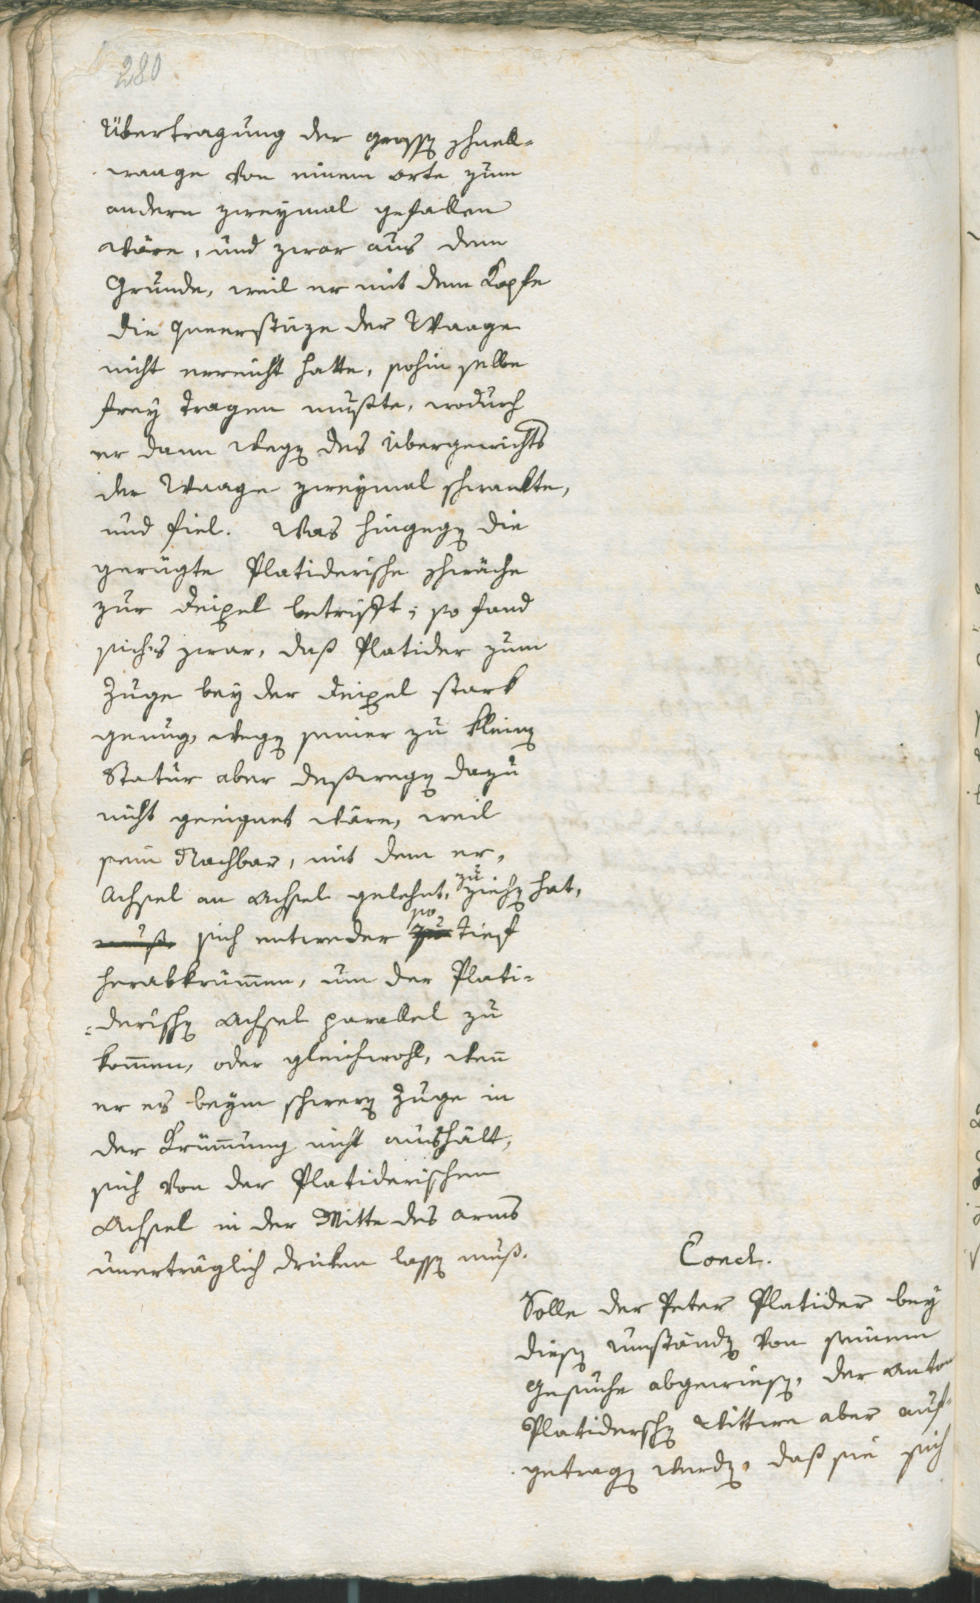 280
Übertragung der grossen Schnell-
waage von einem Orte zum
andern zweymal gefallen
wäre, und zwar aus dem
Grunde, weil er mit dem Kopfe
die Queerstüze der Waage
nicht erreicht hatte, sohin selbe
frey tragen mußte, wodurch
er dann wegen des Übergewichts
der Waage zweymal schwankte,
und fiel. Was hingegen die
gerügte Platiderische Schwäche
zur Deixel betrifft; so fand
sich's zwar, daß Platider zum
Zuge bey der Deixel stark
genug, wegen seiner zu kleinen
Statur aber deßwegen dazu
nicht geeignet wäre, weil
sein Nachbar, mit dem er,
Achsel an Achsel gelehnt, zu ziehen hat,
muß sich entweder so zu tief
herabkrümen, um der Plati-
=derischen Achsel parallel zu
komen, oder gleichwohl, wen
er es beym schweren Zuge in
der Krümung nicht aushält,
sich von der Platiderischen
Achsel in der Mitte des Arms
unerträglich drüken lassen muß.
Concl.
Solle der Peter Platider bey
diesen Umständen von seinem
Gesuche abgewiesen, der Anton
Platiderschen Wittwe aber auf-
getragen werden, daß sie sich